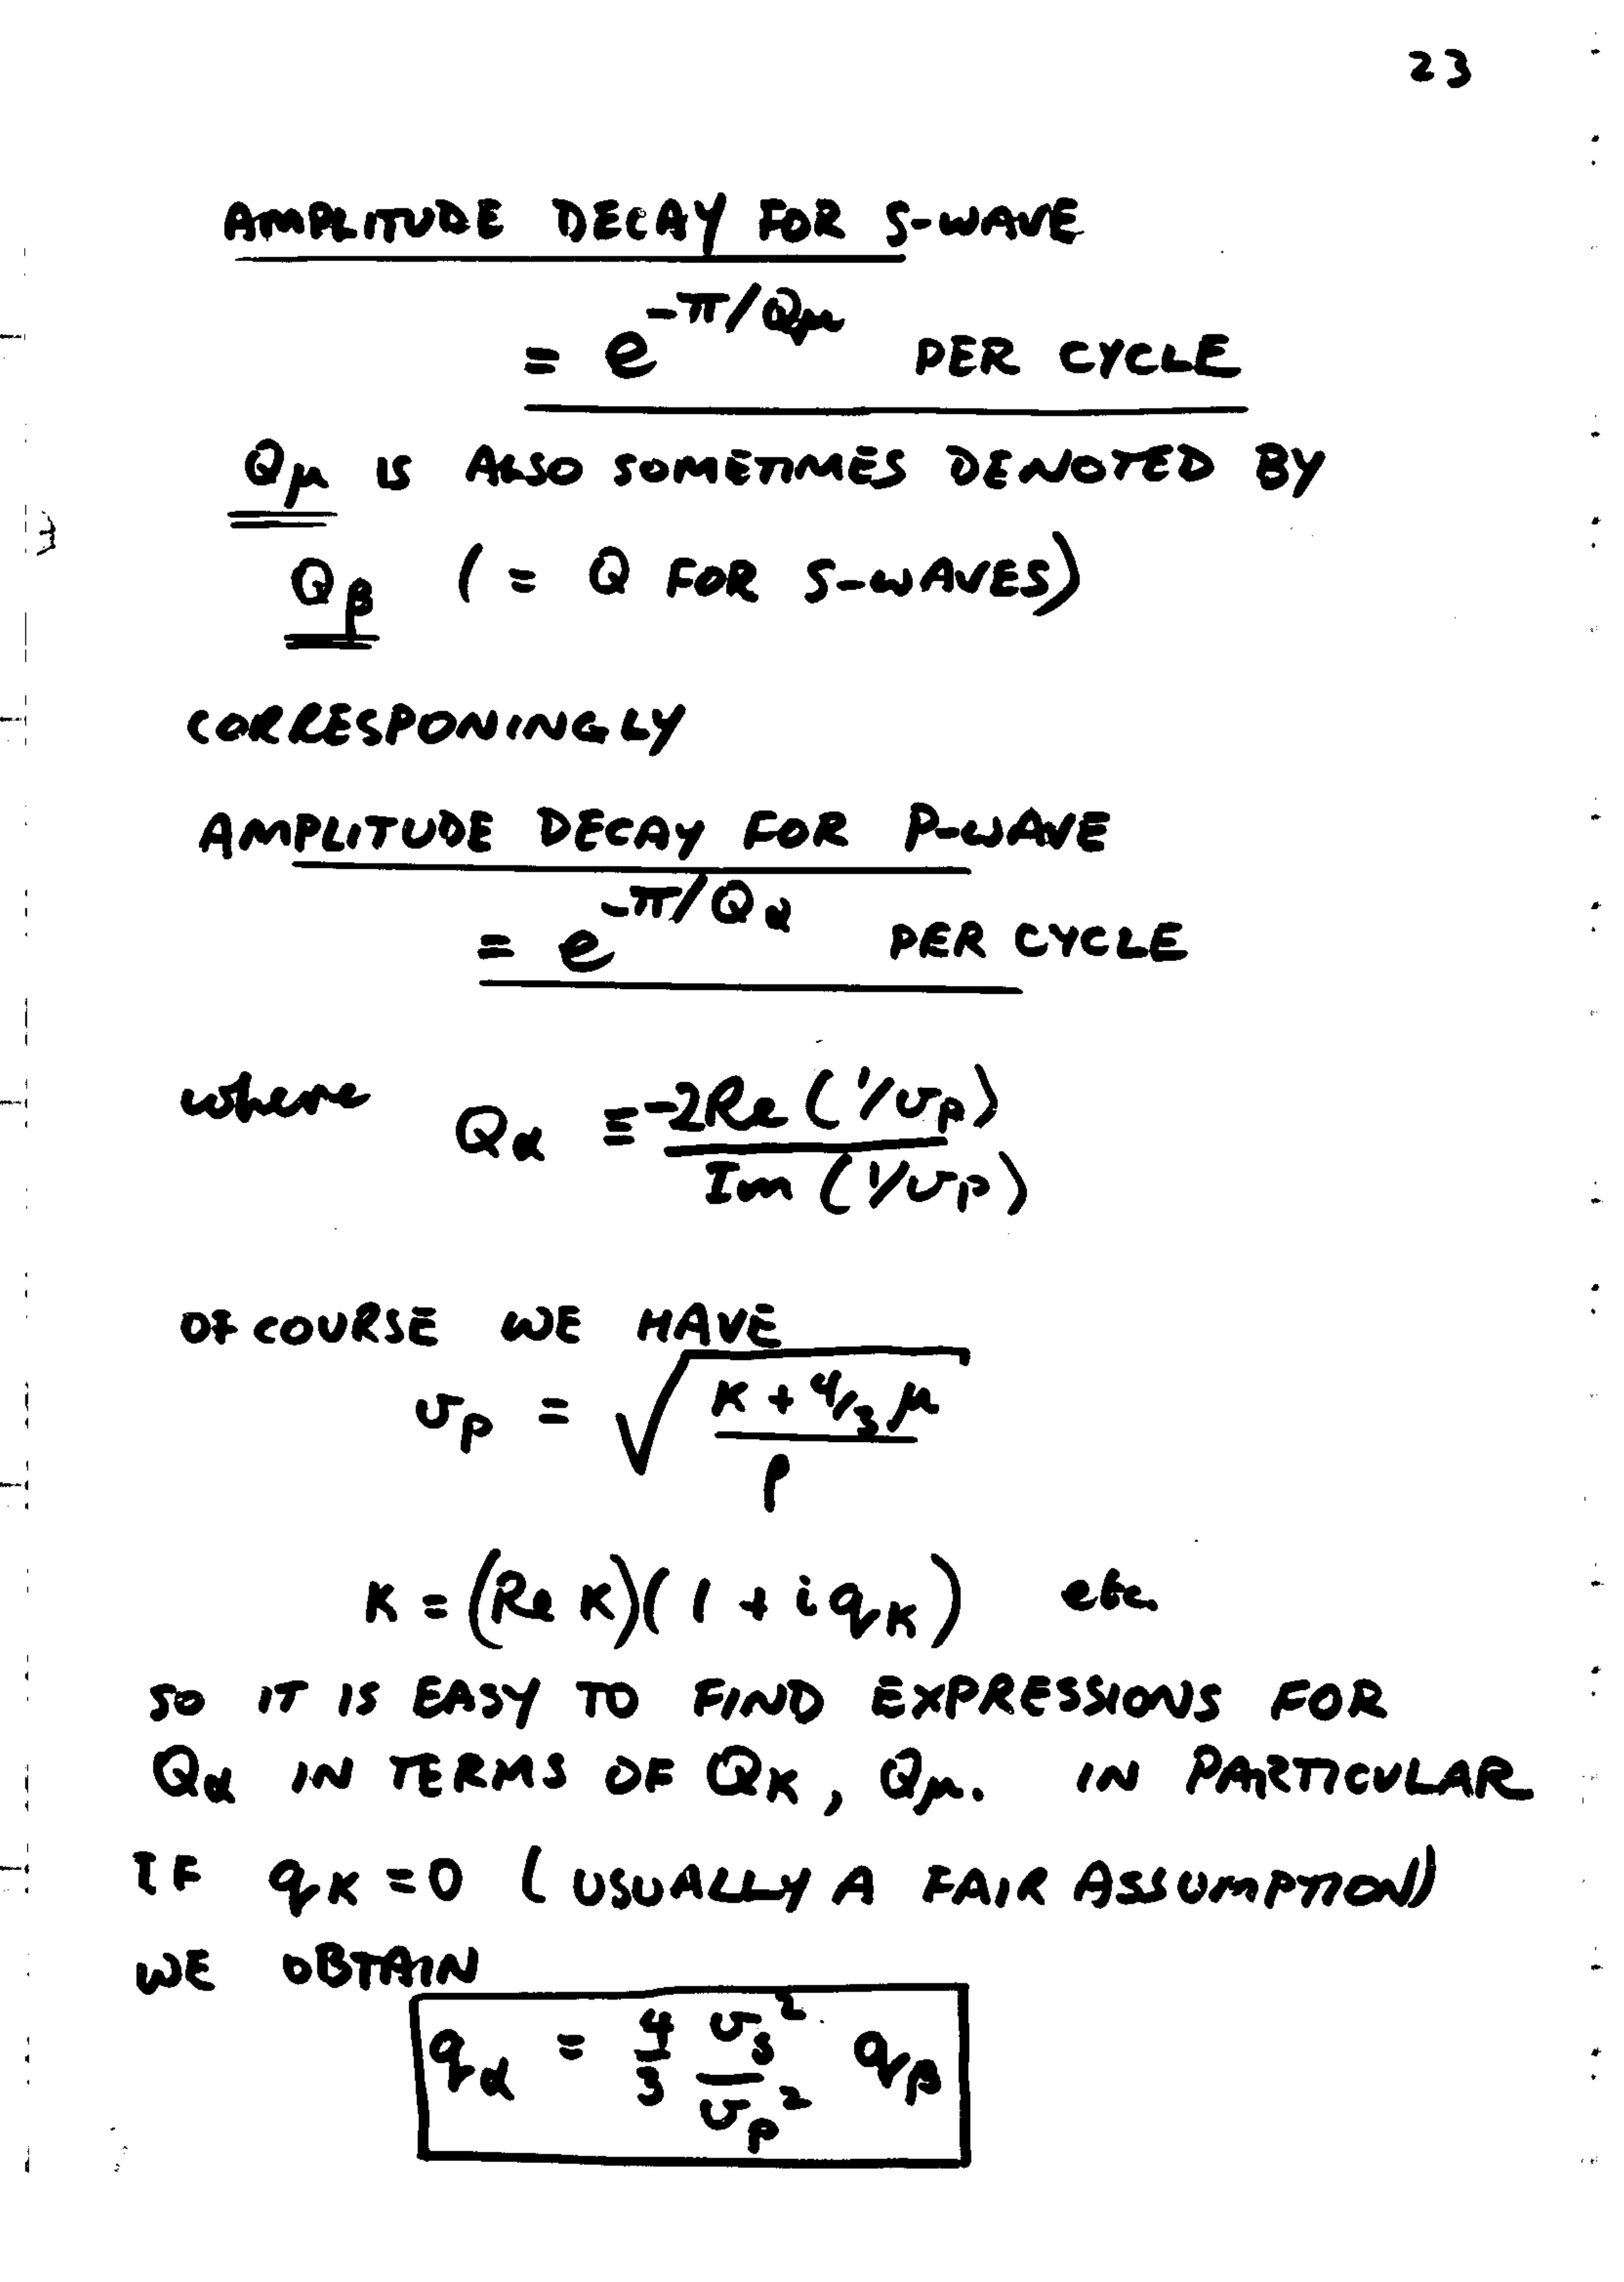 23
AMPLITUDE DECAY FOR S-WAVE
= e^{-π/Qμ} PER CYCLE
Qμ IS ALSO SOMETIMES DENOTED BY
Qβ (= Q FOR S-WAVES)
CORRESPONINGLY
AMPLITUDE DECAY FOR P-WAVE
= e^{-π/Qα} PER CYCLE
where Qα ≡ -2Re(1/υp) / Im(1/υp)
OF COURSE WE HAVE
υp = √((κ + 4/3 μ)/ρ)
κ = (Re κ)(1 + i qκ) etc.
SO IT IS EASY TO FIND EXPRESSIONS FOR
Qα IN TERMS OF Qκ, Qμ. IN PARTICULAR
IF qκ = 0 (USUALLY A FAIR ASSUMPTION)
WE OBTAIN
qα = 4/3 υs²/υp² qβ